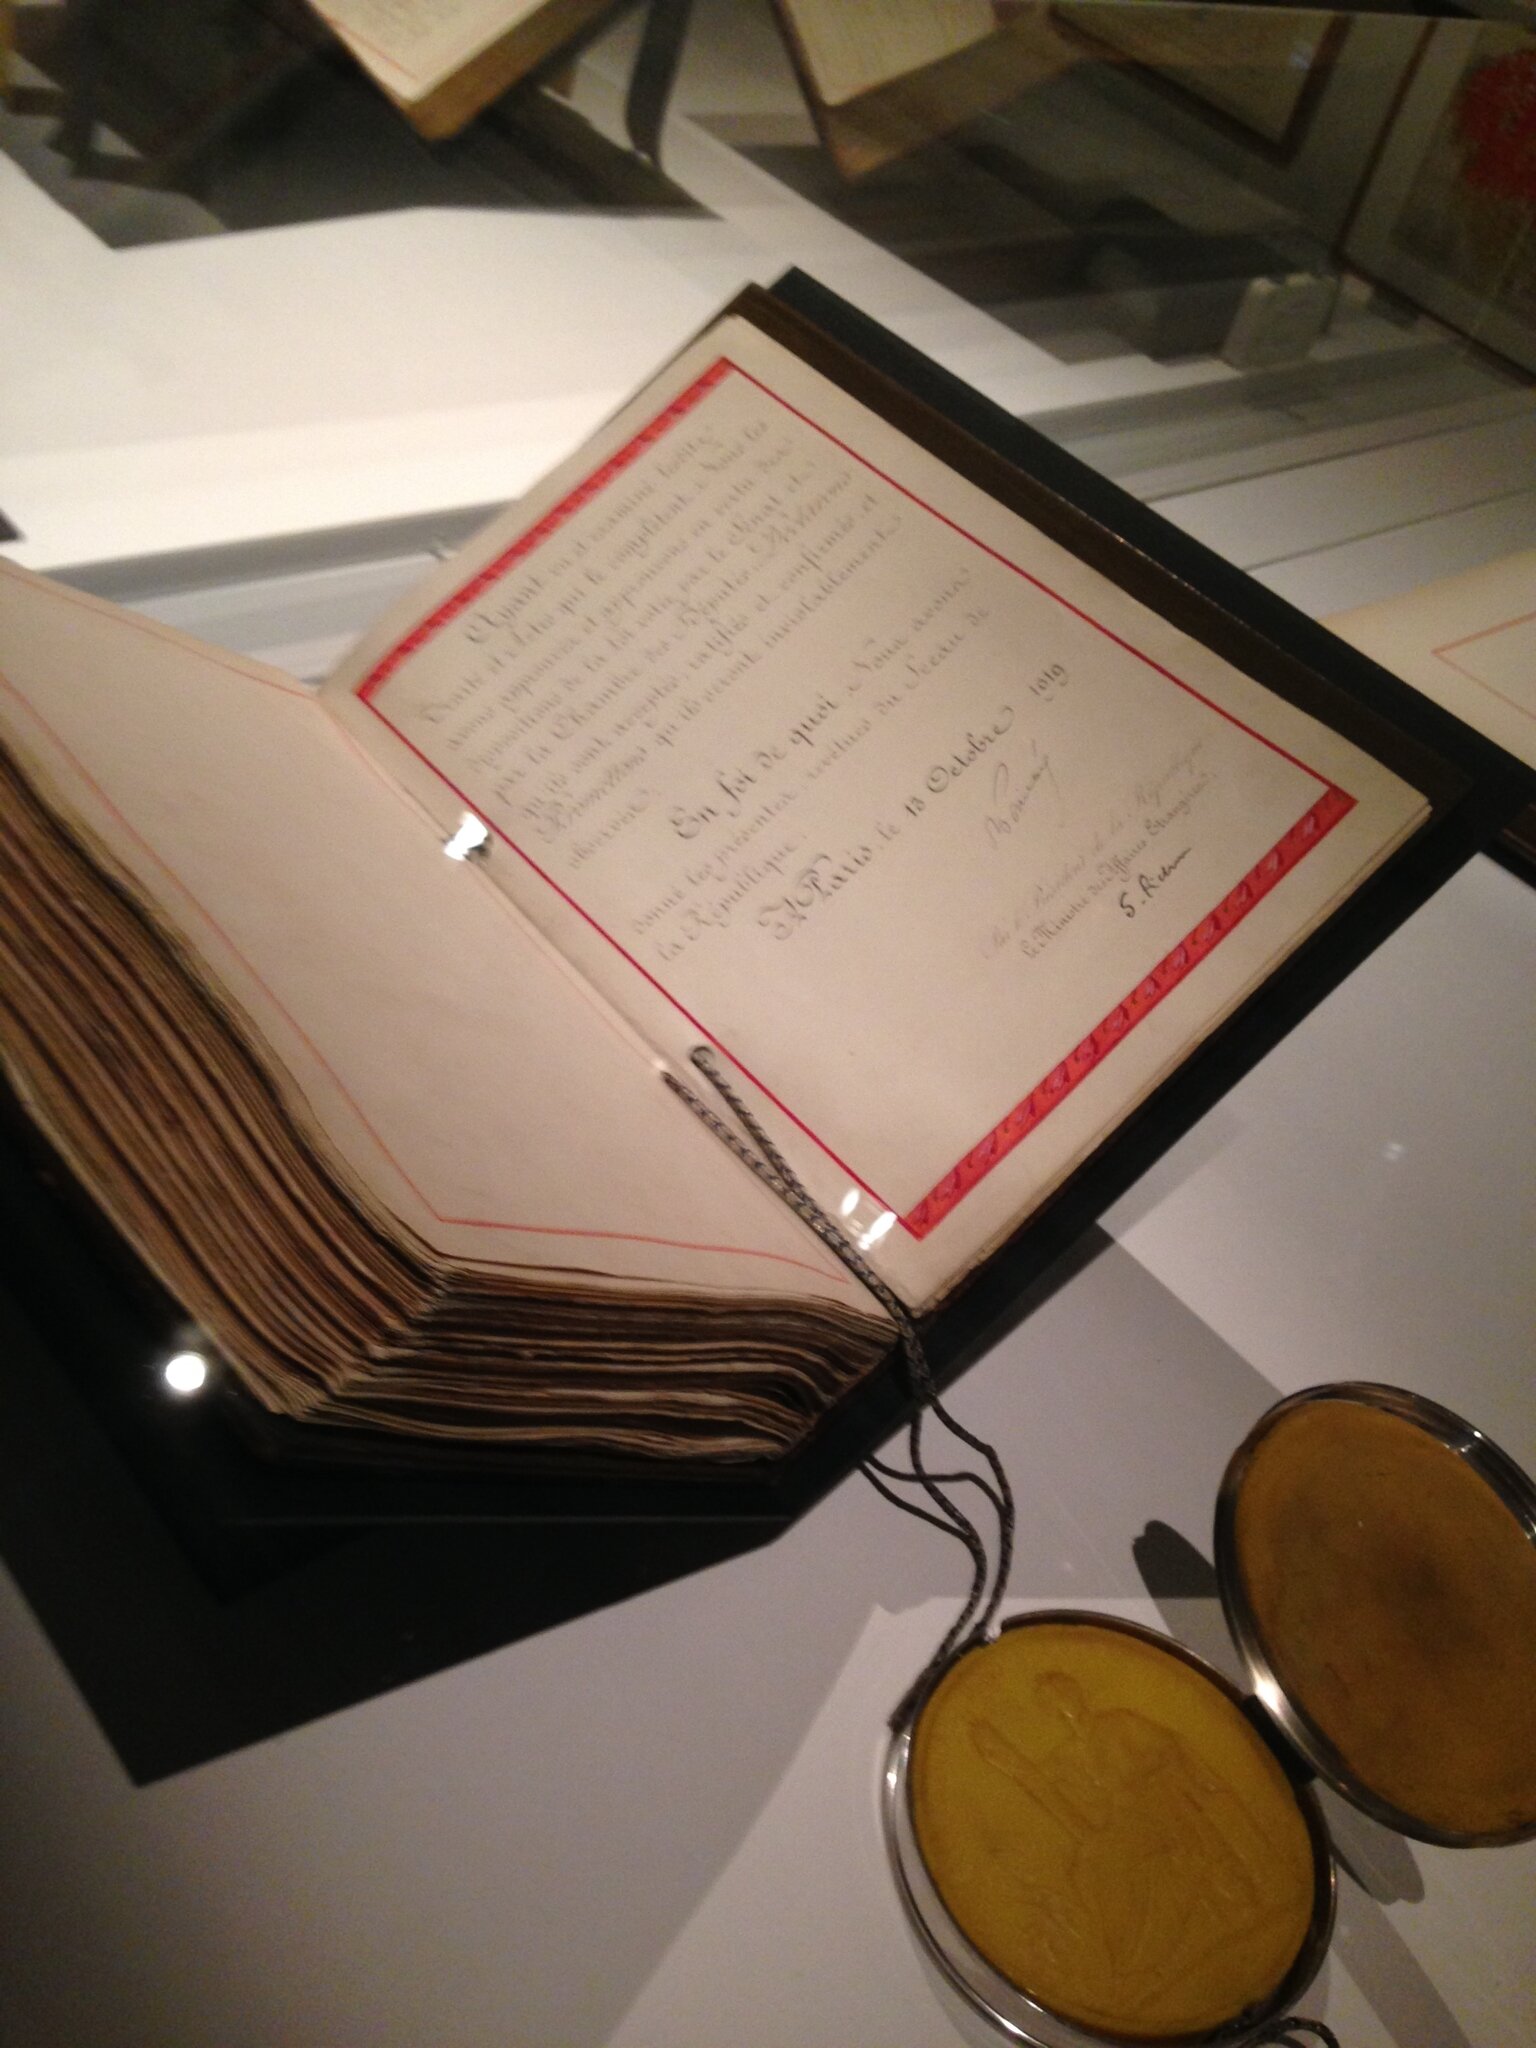 Ayant vu et examiné ledit
Traité et celui qui le complétant, Nous les
avons approuvés et approuvons en vertu des
dispositions de la loi votée par le Sénat et
par la Chambre des Députés
qu'ils sont acceptés, ratifiés et confirmés et
qu'ils seront inviolablement
observés.
En foi de quoi, Nous avons
donné les présentes, revêtues du Sceau de
la République.
À Paris, le 13 Octobre 1919
R Poincaré
Par le Président de la République
Le Ministre des Affaires Étrangères
S. Pichon